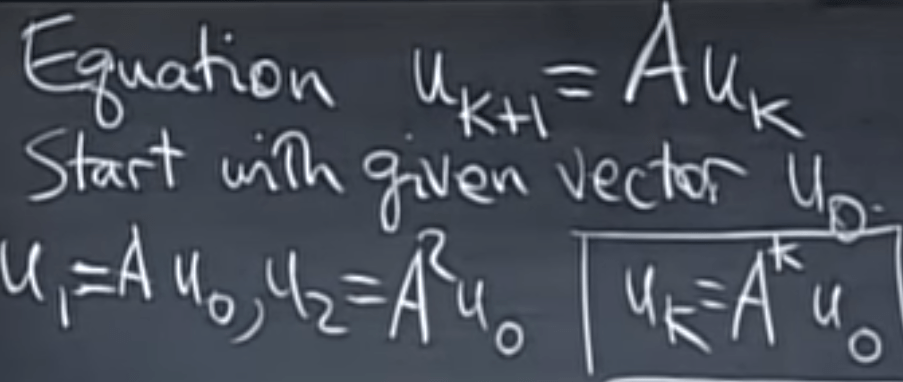 Equation u_{k+1} = A u_k
Start with given vector u_0.
u_1 = A u_0, u_2 = A^2 u_0 u_k = A^k u_0